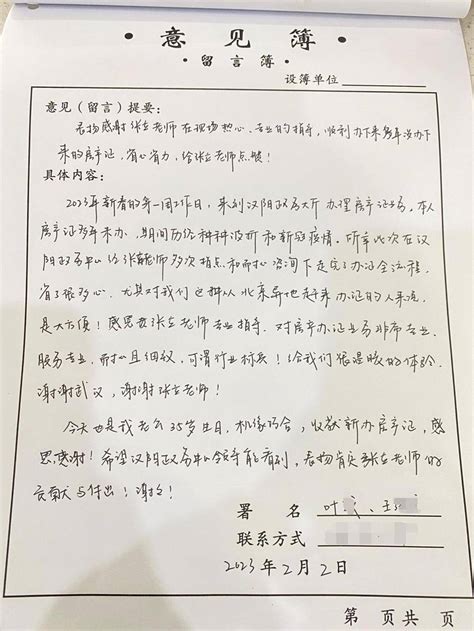 意见簿
留言簿
设簿单位
意见（留言）提要：
表扬感谢张立老师在现场热心、专业的指导，顺利办下来多年没办下
来的房产证，省心省力，给张立老师点赞！
具体内容：
2023年新春的第一周工作日，来到汉阳政务大厅办理房产证业务。本人
房产证多年未办，期间历经种种波折和新冠疫情。听幸此次在汉
阳政务中心经张老师多次指点和耐心咨询下走完了办证全流程，
省了很多心。尤其对我们这种从北京异地赶来办证的人来说，
是大方便！感恩张立老师专业指导。对房产办证业务非常专业，
服务专业，耐心且细致，可谓行业标兵！给我们很温暖的体验。
谢谢武汉，谢谢张立老师！
今天也是我老公35岁生日，机缘巧合，收获新办房产证，感
恩感谢！希望汉阳政务中心领导能看到，表扬肯定张立老师的
贡献与付出！谢谢！
署 名 叶 、王
联系方式
2023年2月2日
第 页共 页